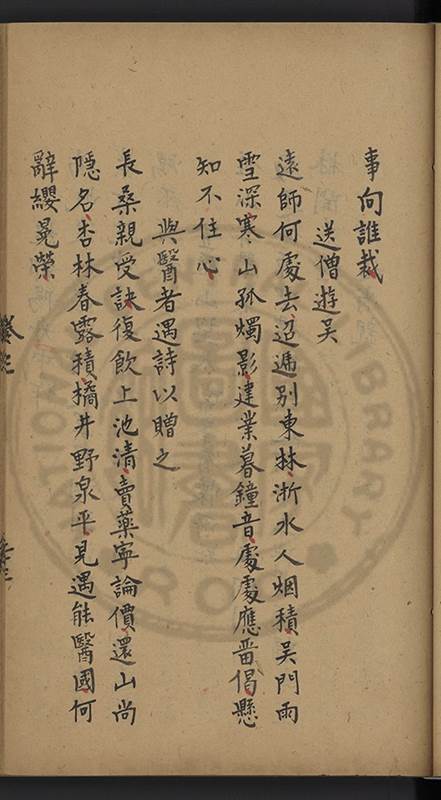 事向誰裁
送僧遊吳
遠師何處去迢遞別東林浙水人烟積吳門雨
雪深寒山孤燭影建業暮鐘音處處應畱偈懸
知不住心
與醫者遇詩以贈之
長桑親受訣復飲上池清賣藥寧論價還山尚
隱名杏林春露積橘井野泉平見遇能醫國何
辭纓冕榮